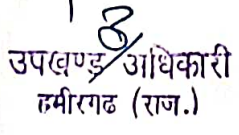 उपखण्ड अधिकारी
हमीरगढ (राज.)